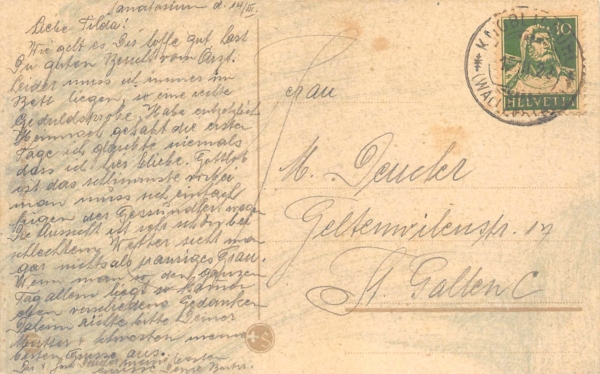 Sanatorium d. 14/III.
Liebe Tilda!
Wie geht es Dir hoffe gut. Hast
Du guten Bericht vom Arzt.
Leider muss ich immer im
Bett liegen, so eine rechte
Geduldsprobe, Habe entsetzlich
Heimweh gehabt die ersten
Tage ich glaubte niemals
dass ich hier bliebe. Gottlob
ist das schlimmste vorbei
man muss sich einfach
fügen der Gesundheit wegen
Die Aussicht ist sehr schön bei
schlechtem Wetter sieht man
gar nichts als trauriges Grau.
Wenn man so den ganzen
Tag allein liegt so kommen
einen verschiedene Gedanken
Deiner
Mutter & Schwester meine
besten Grüsse aus.
Frau
M.
Geltenwilenstr. 17
St. Gallen C
10
HELVETIA